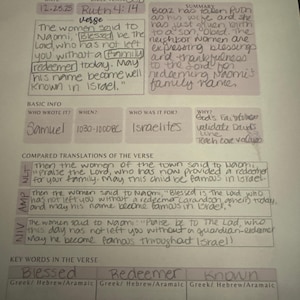 12.25.25 Ruth 4:14
SUMMARY
verse
The women said to
Naomi, Blessed be the
Lord, who has not left
you without a family
redeemer today. May
his name become well
known in Israel."
Boaz has taken Ruth
as his wife and she
has just given birth
to a son, Obed. The
neighbor women are
expressing blessings
and thankfulness
to the Lord for
redeeming Naomi's
family name.
BASIC INFO
WHO WROTE IT?
WHEN?
WHO WAS IT FOR?
WHY?
Samuel
1030-1000BC
Israelites
validate David's
line
COMPARED TRANSLATIONS OF THE VERSE
NLT
Then the women of the town said to Naomi,
"Praise the Lord, who has now provided a redeemer
for your family. May this child be famous in Israel.
AMP
Then the women said to Naomi, "Blessed is the Lord who
has not left you without a redeemer today,
and may his name become famous in Israel."
NIV
The women said to Naomi: "Praise be to the Lord, who
this day has not left you without a guardian-redeemer.
May he become famous throughout Israel!
KEY WORDS IN THE VERSE
Blessed Redeemer Known
Greek/ Hebrew/Aramaic Greek/ Hebrew/Aramaic Greek/ Hebrew/Aramaic